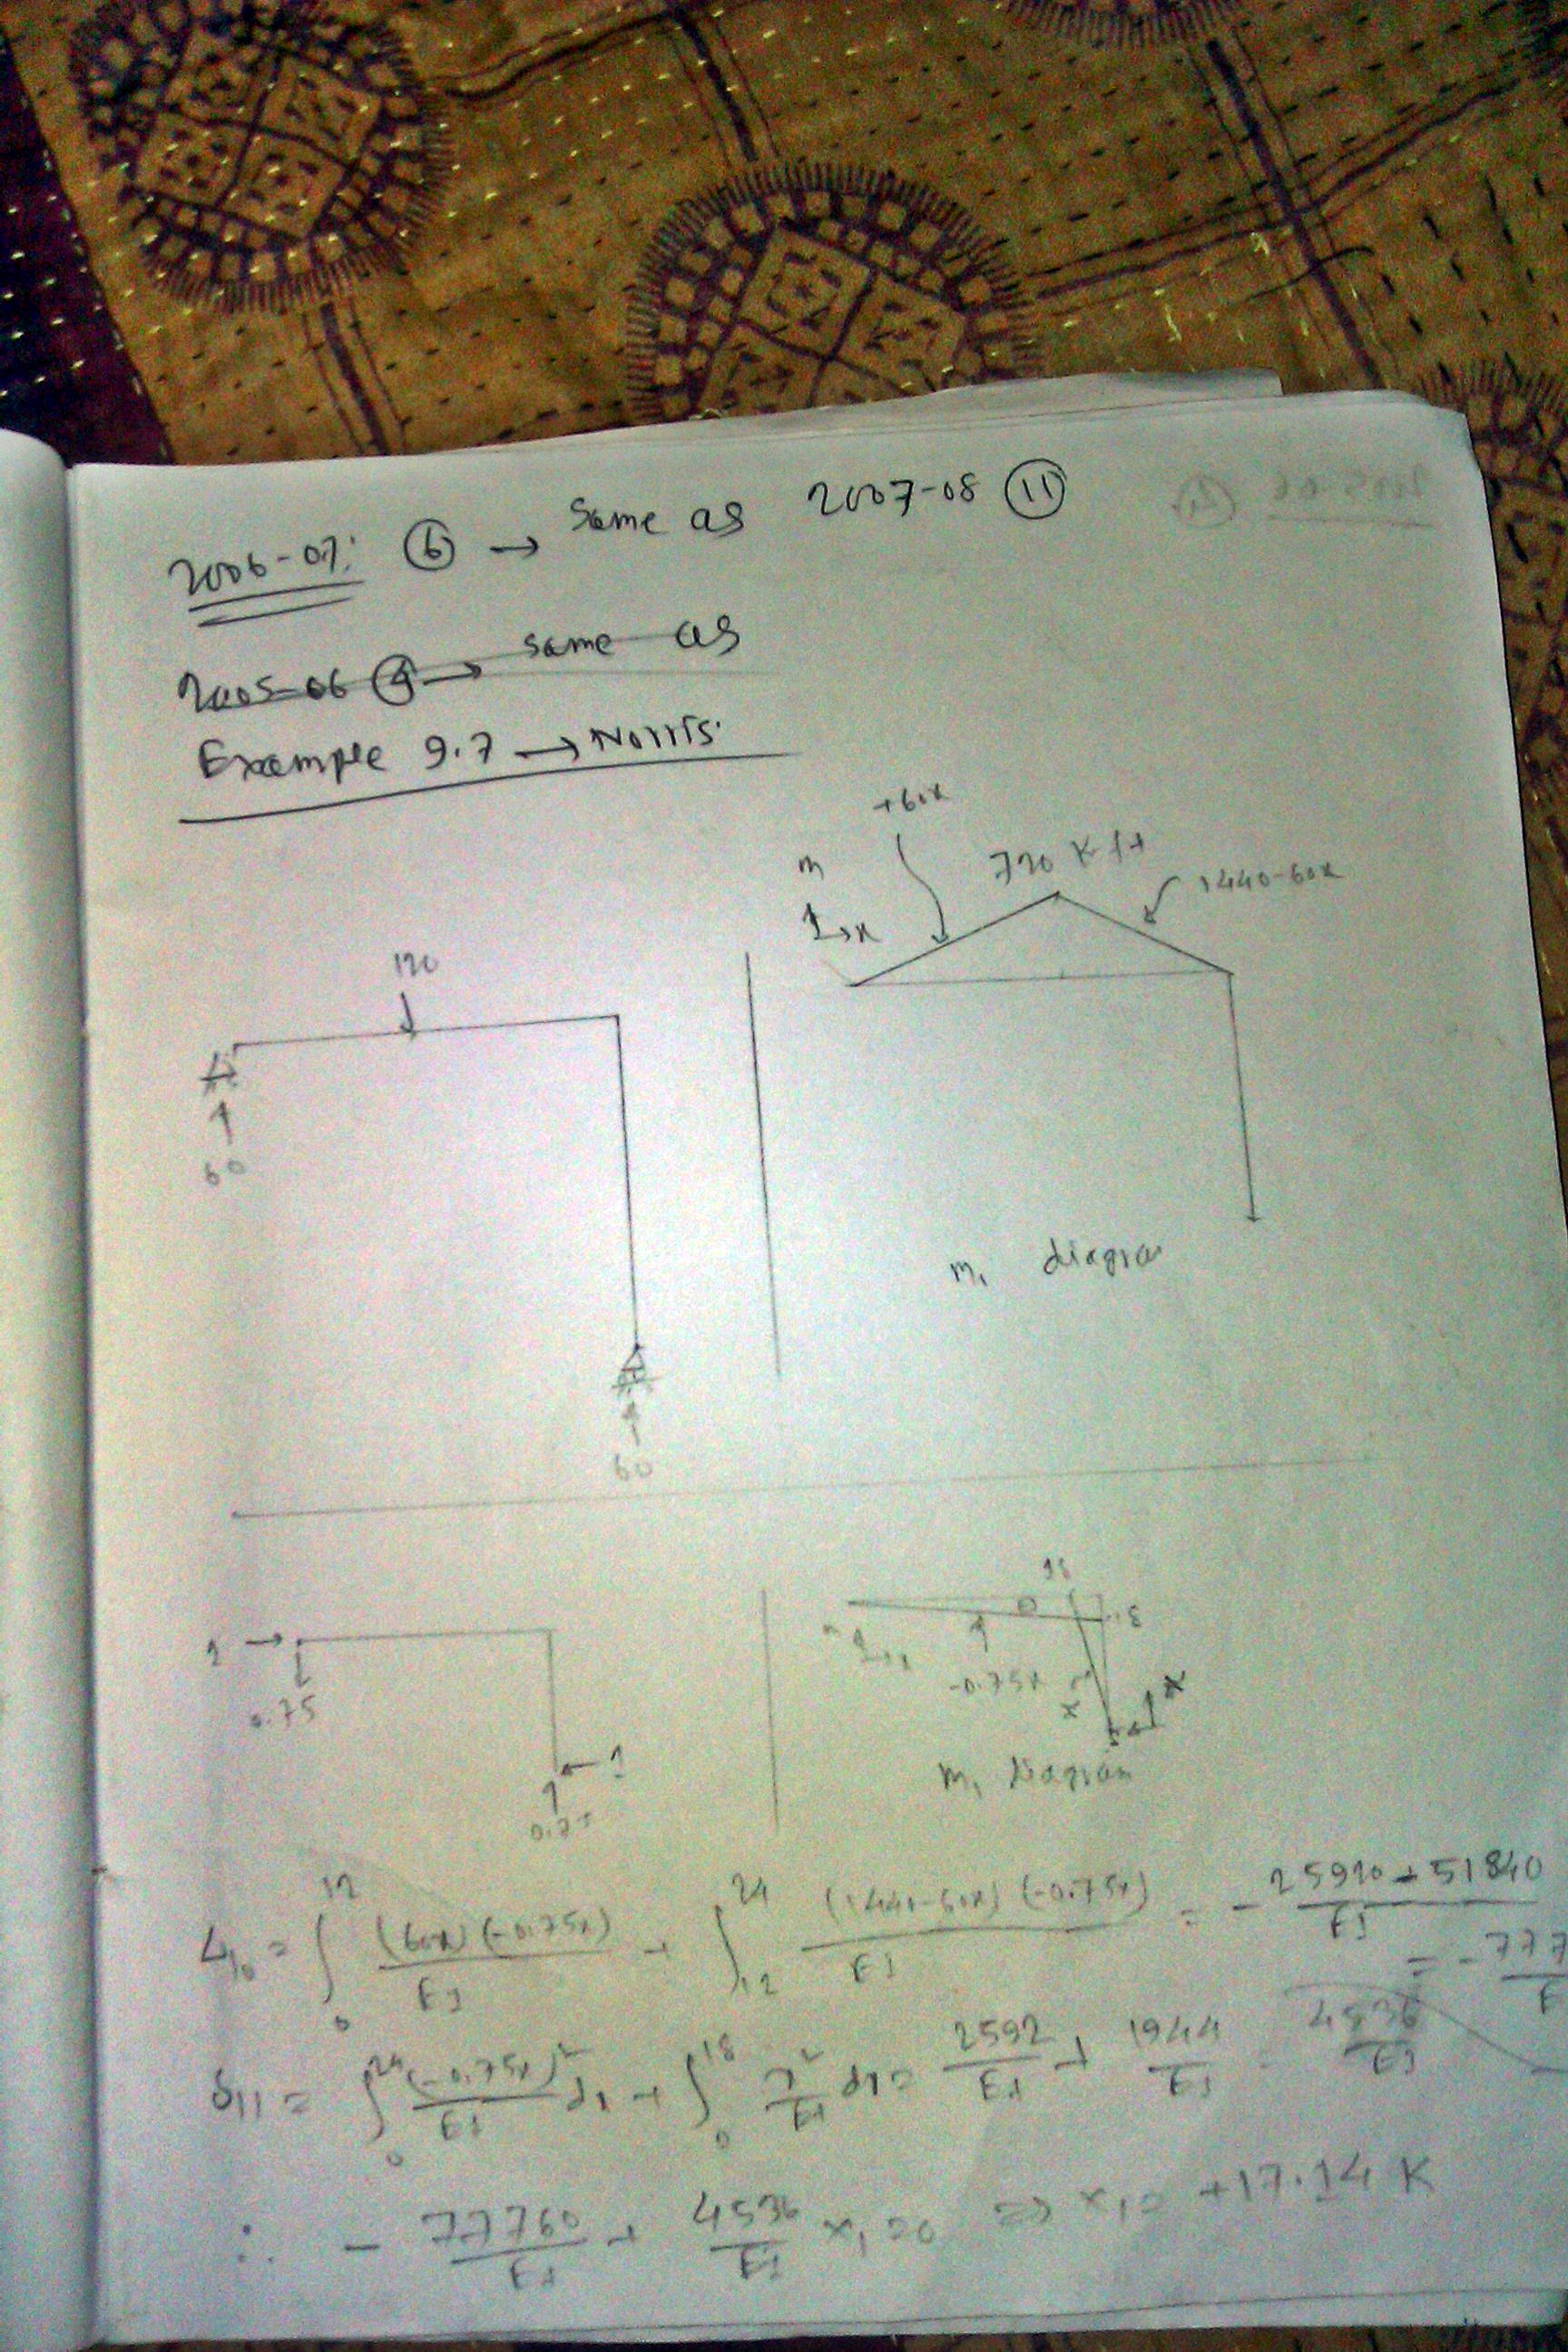 2006-07: ⑥ → Same as 2007-08 ⑪
2005-06 → same as
Example 9.7 → Norris.
+60x
m
720 K ft
1440-60x
x
120
60
m, diagra
60
18
1
0.75
-0.75x
x
x
1
m, Diagram
0.75
= ∫₀¹² (60x)(-0.75x)/EI + ∫₁₂²⁴ (1440-60x)(-0.75x)/EI = - 25920+51840/EI
= - 777
δ₁₁ = ∫₀²⁴ (-0.75x)²/EI dx + ∫₀¹⁸ x²/EI dx = 2592/EI + 1944/EI 4536/EI
∴ - 77760/EI + 4536/EI x₁ = 0 ⇒ x₁ = +17.14 K